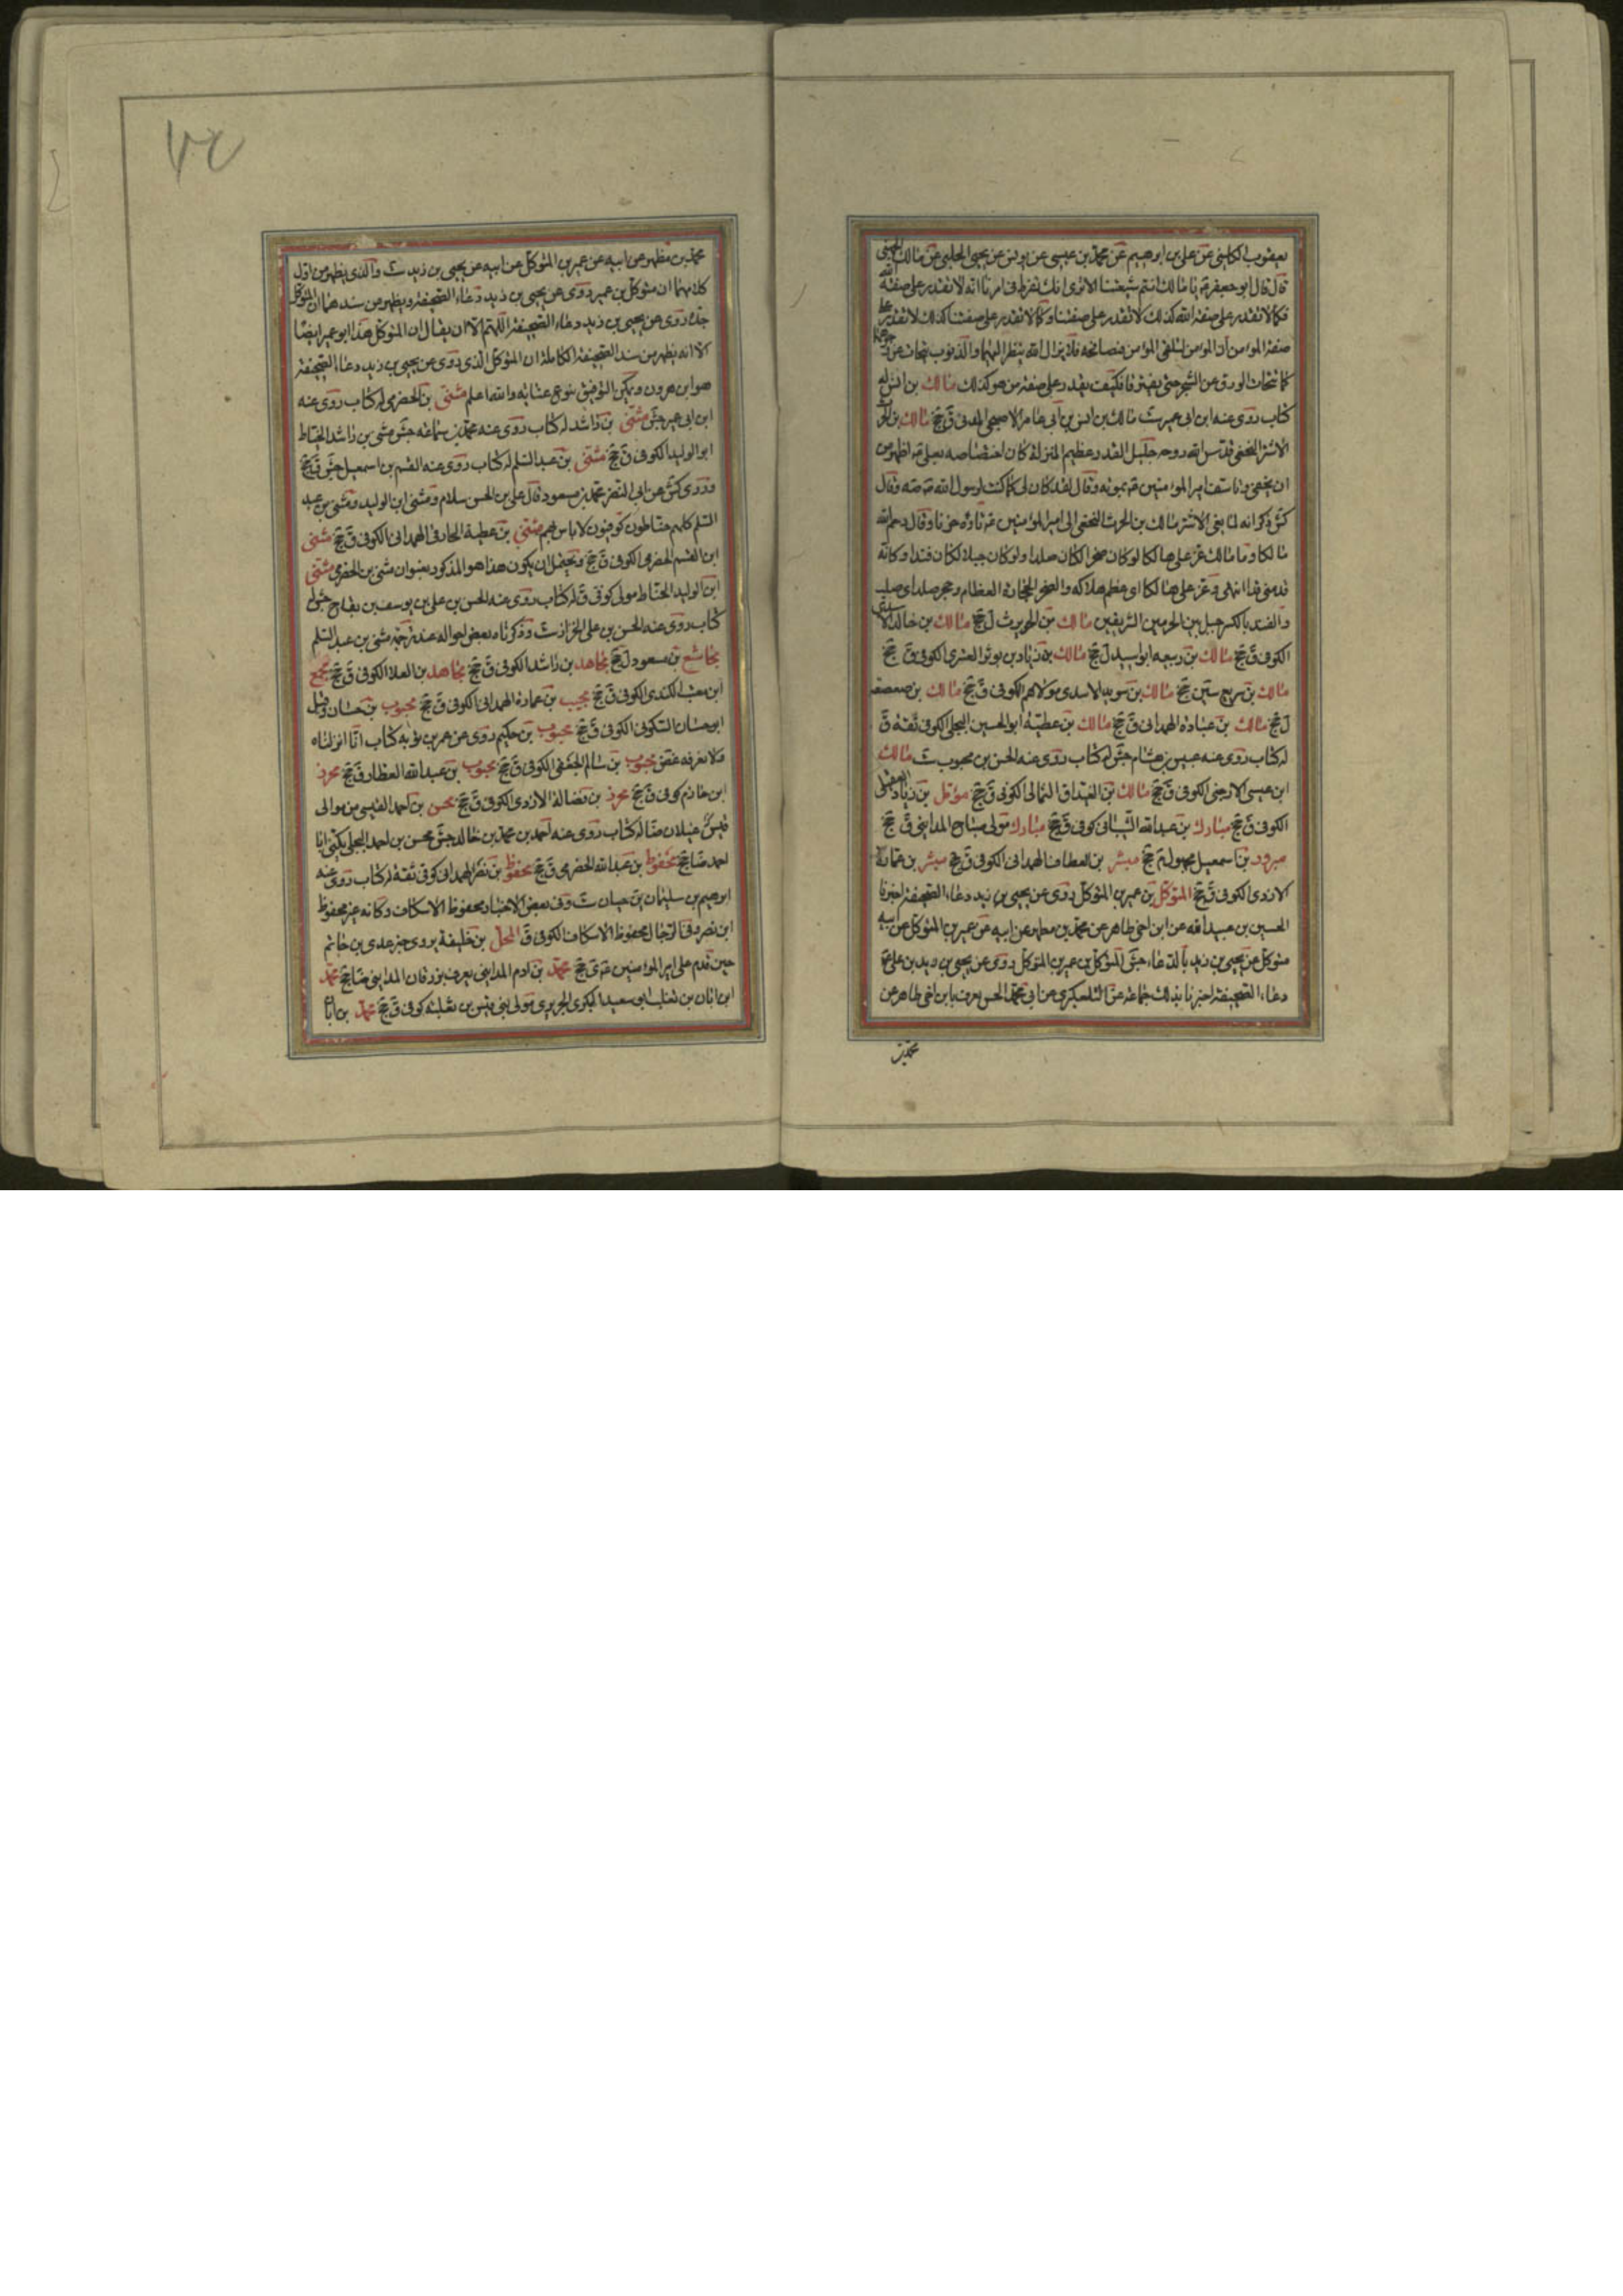 يعقوب الكليني عن علي بن ابرهيم عن محمد بن عيسى عن يونس عن يحيى الحلبي عن مالك الجهني
قال قال ابو جعفر ع يا مالك انتم شيعتنا الا ترى انك تفرط في امرنا انه لا تقدر على صفة الله
فكما لا تقدر على صفة الله كذلك لا تقدر على صفتنا وكما لا تقدر على صفتنا كذلك لا تقدر على
صفة المؤمن ان المؤمن ليلقى المؤمن فيصافحه فلا يزال الله ينظر اليهما والذنوب تتحات عن
كما تتحات الورق عن الشجر حتى يفترقا فكيف يقدر على صفة من هو كذلك مالك بن انس له
كتاب روى عنه ابن ابي عمير ست مالك بن انس بن ابي عامر الاصبحي المدني ق جخ مالك بن الحرث
الاشتر النخعي قدس الله روحه جليل القدر عظيم المنزلة كان اختصاصه بعلي ع اظهر من
ان يخفى وتاسف امير المؤمنين ع بموته وقال لقد كان لي كما كنت لرسول الله ص صه وقال
كش ذكر انه لما نعي الاشتر مالك بن الحرث النخعي الى امير المؤمنين ع تاوه حزنا وقال رحم الله
مالكا وما مالك عز علي هالكا لو كان صخرا لكان صلدا ولو كان جبلا لكان فندا وكانه
قد مني قدا انتهى وعز علي هالكا اي عظم هلاكه والصخر الحجارة العظام وحجر صلد اي صلب
والفند بالكسر جبل بين الحرمين الشريفين مالك بن الحويرث ل جخ مالك بن خالد الاسدي
الكوفي ق جخ مالك بن ربيعه ابو اسيد ل جخ مالك بن زياد بن العنزي الكوفي ق جخ
مالك بن سريع سين جخ مالك بن سويد الاسدي مولاهم الكوفي ق جخ مالك بن صعصعة
ل جخ مالك بن عبادة الهمداني ق جخ مالك بن عطية ابو الحسين البجلي الكوفي ثقة ق
له كتاب روى عنه عبيس بن هشام جش له كتاب روى عنه الحسن بن محبوب ست مالك
ابن عيسى الارحبي الكوفي ق جخ مالك بن الغيداق الثمالي الكوفي ق جخ مؤمل بن زياد العقيلي
الكوفي ق جخ مبارك بن عبد الله الشيباني كوفي ق جخ مبارك مولى صباح المدايني ق جخ
مبرور بن اسمعيل مجهول م جخ مبشر بن العطاف الهمداني الكوفي ق جخ مبشر بن عمارة
الازدي الكوفي ق جخ المتوكل بن عمير بن المتوكل روى عن يحيى بن زيد دعاء الصحيفة اخبرنا
الحسين بن عبيد الله عن ابن اخي طاهر عن محمد بن مطهر عن ابيه عن عمير بن المتوكل عن ابيه
متوكل عن يحيى بن زيد بالدعاء جش المتوكل بن عمير بن المتوكل روى عن يحيى بن زيد بن علي ع
دعاء الصحيفة اخبرنا بذلك جماعة عن التلعكبري عن ابي محمد الحسن يعرف بابن اخي طاهر عن
محمد بن
٧٤
محمد بن مطهر عن ابيه عن عمير بن المتوكل عن ابيه عن يحيى بن زيد ست والذي يظهر من اول
كلامهما ان متوكل بن عمير روى عن يحيى بن زيد دعاء الصحيفة ويظهر من سندهما ان المتوكل
جده روى عن يحيى بن زيد دعاء الصحيفة اللهم الا ان يقال ان المتوكل هذا ابو عمير ايضا
الا انه يظهر من سند الصحيفة الكاملة ان المتوكل الذي روى عن يحيى بن زيد دعاء الصحيفة
هو ابن هرون ويمكن التوفيق بنوع عناية والله اعلم مثنى بن الحضرمي له كتاب روى عنه
ابن ابي عمير جش مثنى بن راشد له كتاب روى عنه محمد بن سماعه جش مثنى بن راشد الحناط
ابو الوليد الكوفي ق جخ مثنى بن عبد السلم له كتاب روى عنه القسم بن اسمعيل جش ق جخ
وروى كش عن ابي النضر محمد بن مسعود قال علي بن الحسن سلام ومثنى ابن الوليد ومثنى بن عبد
السلم كلهم حناطون كوفيون لا باس بهم مثنى بن عطية الحارثي الهمداني الكوفي ق جخ مثنى
ابن القسم الحضرمي الكوفي ق جخ ويحتمل ان يكون هذا هو المذكور بعنوان مثنى بن الحضرمي مثنى
ابن الوليد الحناط مولى كوفي ق له كتاب روى عنه الحسن بن علي بن يوسف بن بقاح جش له
كتاب روى عنه الحسن بن علي الخزاز ست وذكرناه بعض احواله عند ترجمة مثنى بن عبد السلم
مجاشع بن مسعود ل جخ مجاهد بن راشد الكوفي ق جخ مجاهد بن العلا الكوفي ق جخ مجمع
ابن الكندي الكوفي ق جخ مجيب بن عمارة الهمداني الكوفي ق جخ محبوب بن حسان وقيل
ابو حسان السكوني الكوفي ق جخ محبوب بن حكيم روى عن عمر بن توبه كتاب انا انزلناه
ولا نعرفه غض محبوب بن سالم الجعفي الكوفي ق جخ محبوب بن عبد الله العطار ق جخ محرز
ابن حازم كوفي ق جخ محرز بن فضالة الازدي الكوفي ق جخ محسن بن احمد القيسي من موالي
قيس عيلان ضا له كتاب روى عنه احمد بن محمد بن خالد جش محسن بن احمد البجلي يكنى ابا
احمد ضا جخ محفوظ بن عبد الله الحضرمي ق جخ محفوظ بن نصر الهمداني كوفي ثقة له كتاب روى عنه
ابرهيم بن سليمان بن حيان ست وفي بعض الاخبار محفوظ الاسكاف وكانه غير محفوظ
ابن نصر وفي الرجال محفوظ الاسكاف الكوفي ق المحل بن خليفة يروى خبر عدي بن حاتم
حين قدم على امير المؤمنين ع ي جخ محمد بن ادم المدايني يعرف بزرقان المدايني ضا جخ محمد
ابن ابان بن تغلب ابو سعيد البكري الجريري مولى بني قيس بن ثعلبة كوفي ق جخ محمد بن ابان